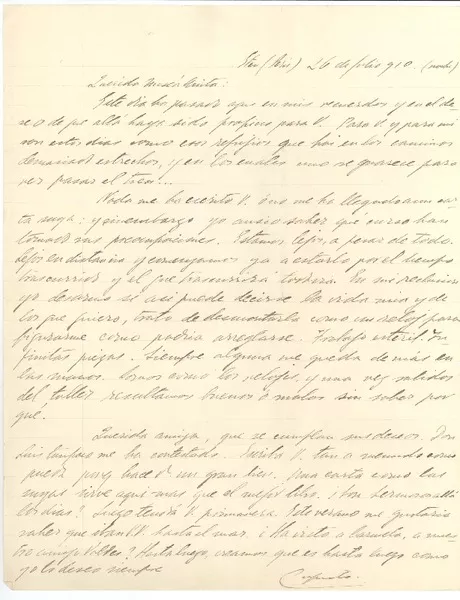 26 de julio 910. (noche)
Querida
Este día ha pasado aquí en mis recuerdos y en el de
seo de que allá haya sido propicio para V. Para V. y para mi
son estos días como esos refugios que hai en los caminos
demasiado estrechos, y en los cuales uno se guarece para
ver pasar el tren...
Nada me ha escrito V. ó no me ha llegado aun car
ta suya: y sinembargo yo ansío saber qué curso han
tomado sus preocupaciones. Estamos lejos, a pesar de todo.
lejos en distancia y comenzamos ya a estarlo por el tiempo
trascurrido y el que trascurrirá todavía. En mi reclusion
yo desarmo si así puede decirse la vida mia y de
los que quiero, trato de desmontarla como un reloj para
figurarme como podria arreglarse. Trabajo estéril. In
finitas piezas. Siempre alguna me queda de más en
las manos. Somos como los relojes, y una vez salidos
del taller resultamos buenos o malos sin saber por
qué.
Querida amiga, que se cumplan sus deseos. Don
Luis tampoco me ha contestado. Escriba V. tan a menudo como
pueda porq. hace V. un gran bien. Una carta como las
suyas sirve aquí mas que el mejor libro. ¿Son hermosos allí
los días? Luego tendrá V. primavera. Este verano me gustaria
saber que iban V. hasta el mar. ¿Ha visto a Carmelo, a nues
tro amigo Valdes? Hasta luego, creamos que es hasta luego como
yo lo deseo siempre